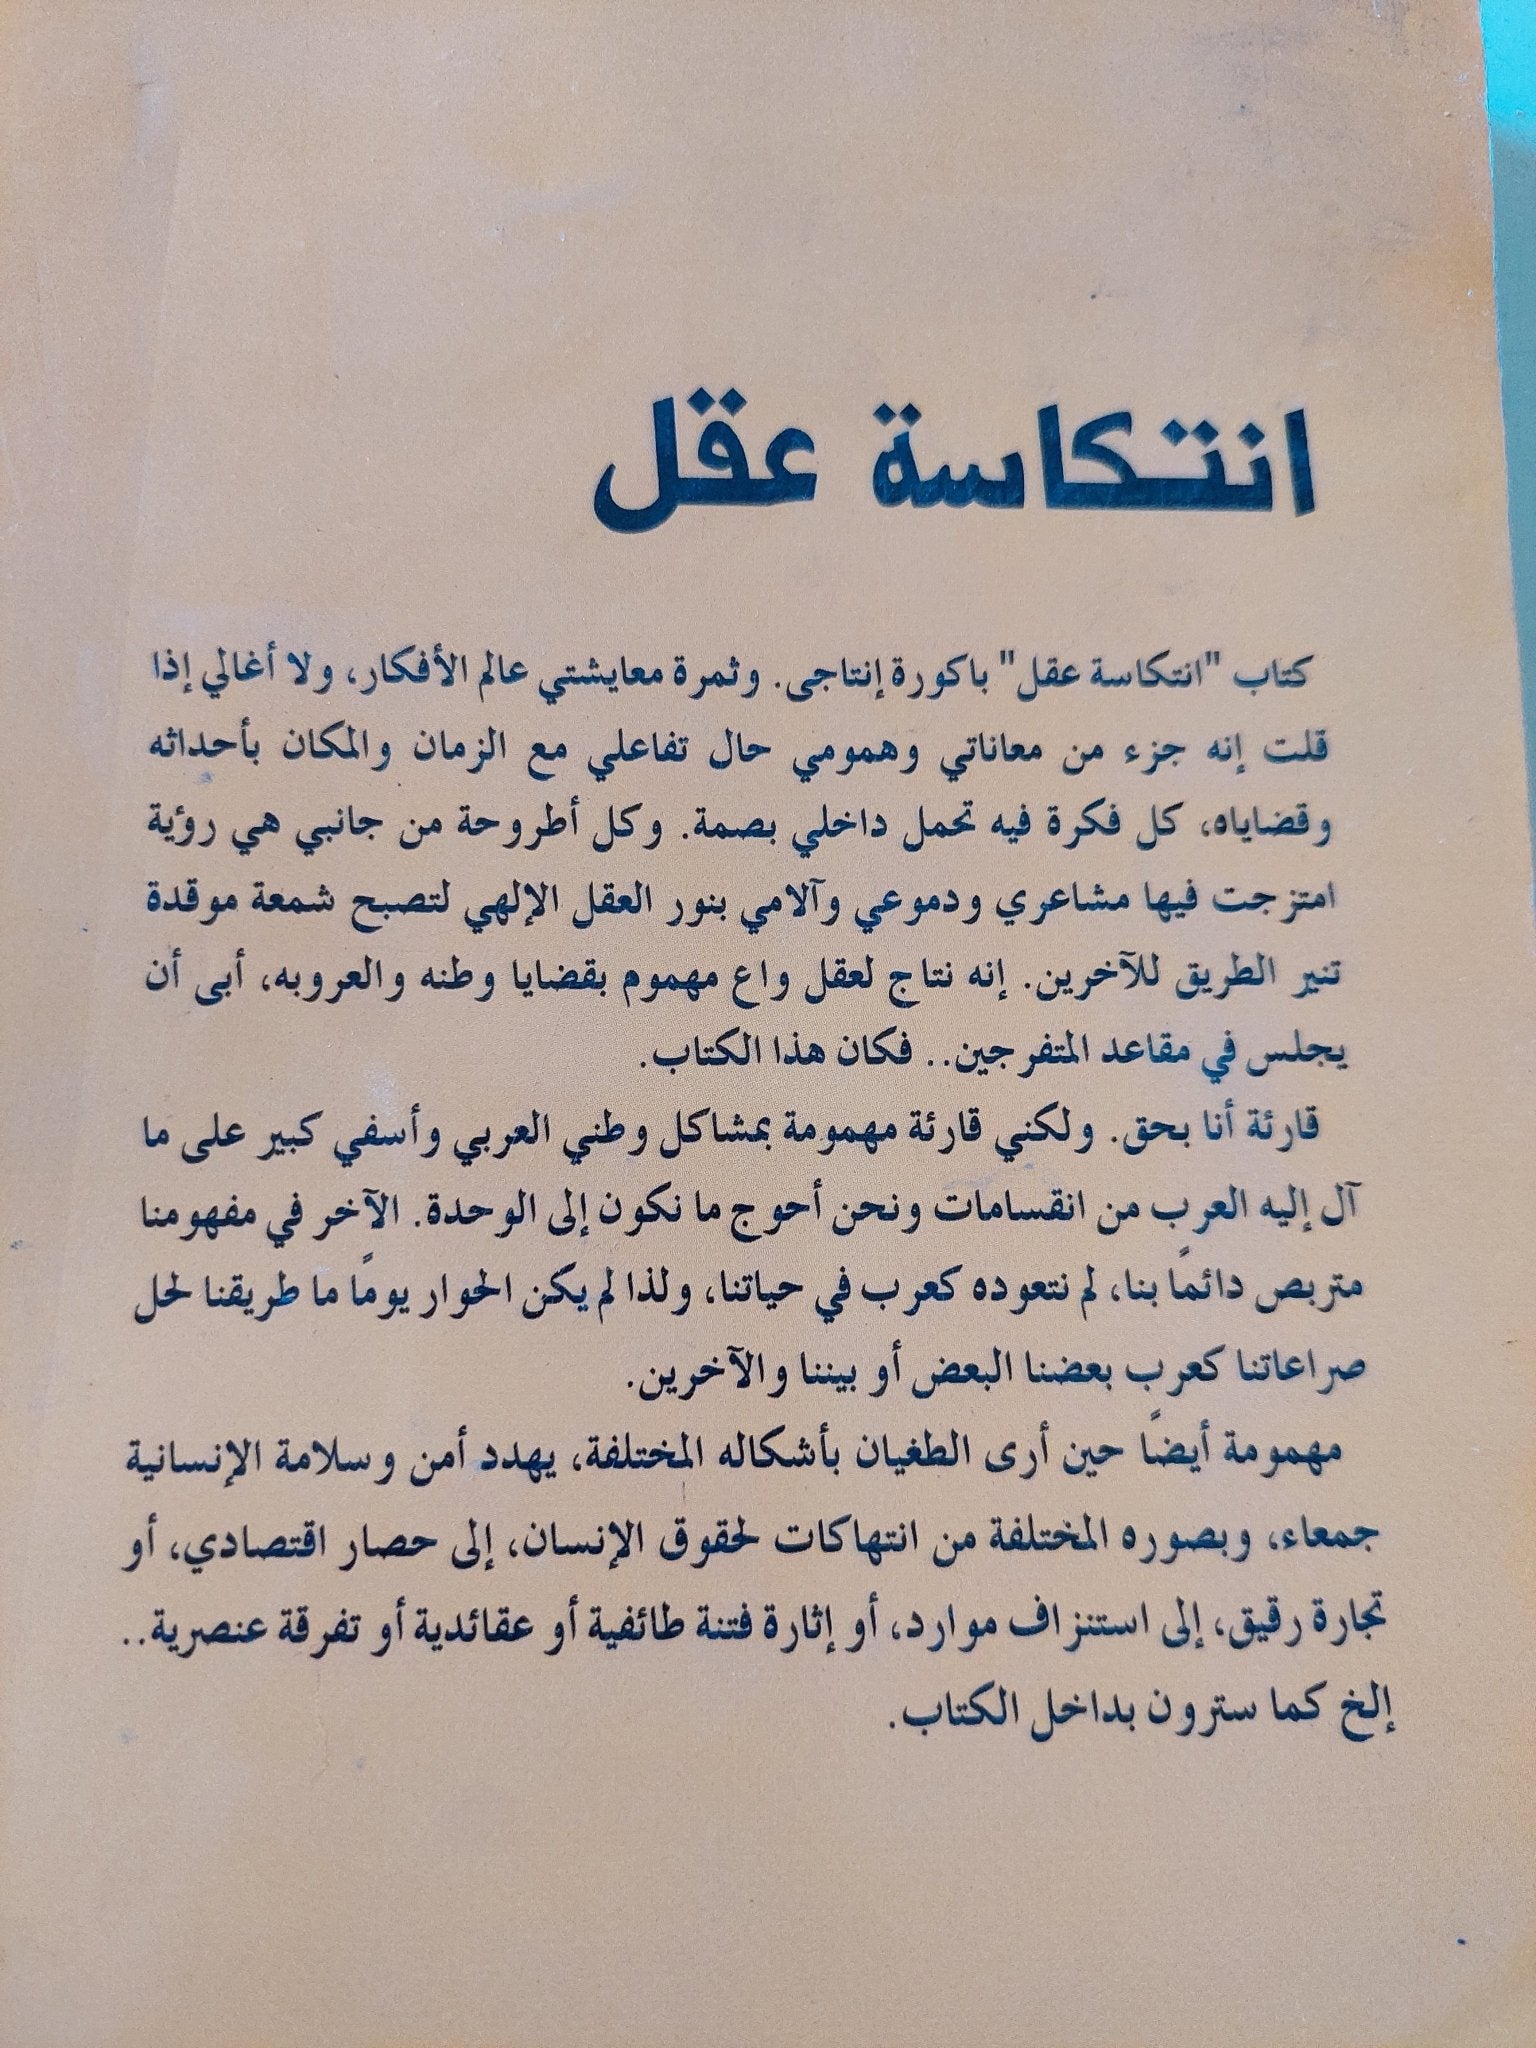 انتكاسة عقل
كتاب "انتكاسة عقل" باكورة إنتاجى. وثمرة معايشتي عالم الأفكار، ولا أغالي إذا
قلت إنه جزء من معاناتي وهمومي حال تفاعلي مع الزمان والمكان بأحداثه
وقضاياه، كل فكرة فيه تحمل داخلي بصمة. وكل أطروحة من جانبي هي رؤية
امتزجت فيها مشاعري ودموعي وآلامي بنور العقل الإلهي لتصبح شمعة موقدة
تنير الطريق للآخرين. إنه نتاج لعقل واع مهموم بقضايا وطنه والعروبه، أبى أن
يجلس في مقاعد المتفرجين.. فكان هذا الكتاب.
قارئة أنا بحق. ولكني قارئة مهمومة بمشاكل وطني العربي وأسفي كبير على ما
آل إليه العرب من انقسامات ونحن أحوج ما نكون إلى الوحدة. الآخر في مفهومنا
متربص دائمًا بنا، لم نتعوده كعرب في حياتنا، ولذا لم يكن الحوار يومًا ما طريقنا لحل
صراعاتنا كعرب بعضنا البعض أو بيننا والآخرين.
مهمومة أيضًا حين أرى الطغيان بأشكاله المختلفة، يهدد أمن وسلامة الإنسانية
جمعاء، وبصوره المختلفة من انتهاكات لحقوق الإنسان، إلى حصار اقتصادي، أو
تجارة رقيق، إلى استنزاف موارد، أو إثارة فتنة طائفية أو عقائدية أو تفرقة عنصرية..
إلخ كما سترون بداخل الكتاب.